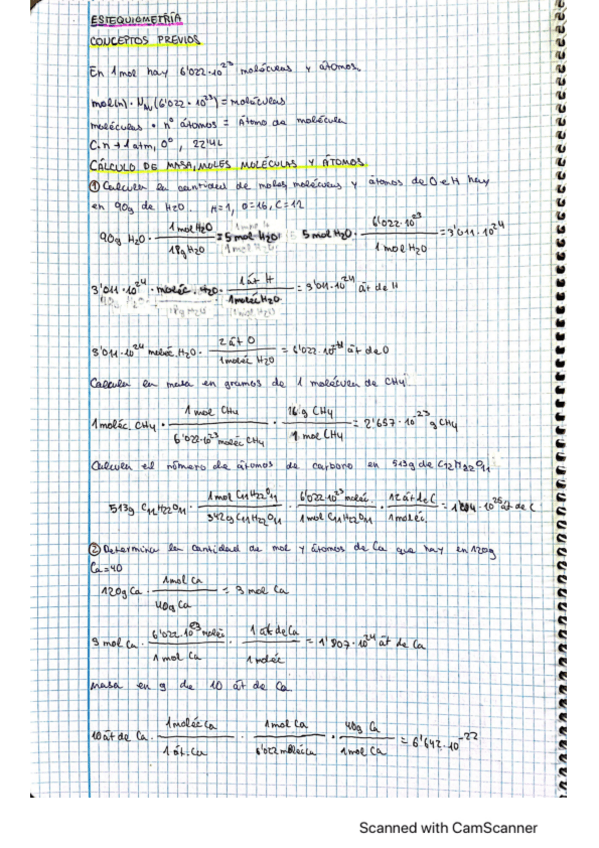 ESTEQUIOMETRÍA
CONCEPTOS PREVIOS
En 1 mol hay 6'022·10^23 moléculas y átomos.
mol(n) · NAV (6'022 · 10^23) = moléculas
moléculas · nº átomos = Átomo de molécula
C.n → 1 atm, 0º, 22'4L
CÁLCULO DE MASA, MOLES MOLÉCULAS Y ÁTOMOS
① Calcular la cantidad de moles, moléculas y átomos de O e H hay
en 90g de H2O. H=1, O=16, C=12
90g H2O · 1 mol H2O / 18g H2O = 5 mol H2O 5 mol H2O · 6'022·10^23 / 1 mol H2O = 3'011·10^24
3'011·10^24 · moléc. H2O · 1 át H / 1 moléc H2O = 3'011·10^24 át de H
3'011·10^24 moléc. H2O · 2 át O / 1 moléc H2O = 6'022·10 át de O
Calcular en masa en gramos de 1 molécula de CH4.
1 moléc. CH4 · 1 mol CH4 / 6'022·10^23 moléc CH4 · 16 g CH4 / 1 mol CH4 = 2'657·10^23 g CH4
Calcular el número de átomos de carbono en 513g de C12H22O11
513g C12H22O11 · 1 mol C12H22O11 / 342g C12H22O11 · 6'022·10^23 moléc. / 1 mol C12H22O11 · 12 át de C / 1 moléc. = ·10^25 át de C
② Determina la cantidad de mol y átomos de Ca que hay en 120g
Ca=40
120g Ca · 1 mol Ca / 40g Ca = 3 mol Ca
3 mol Ca · 6'022·10^23 moléc / 1 mol Ca · 1 át de Ca / 1 moléc = 1'807·10^24 át de Ca
masa en g de 10 át de Ca.
10 át de Ca · 1 moléc Ca / 1 át. Ca · 1 mol Ca / 6'022 moléc Ca · 40g Ca / 1 mol Ca = 6'642·10^-22
Scanned with CamScanner